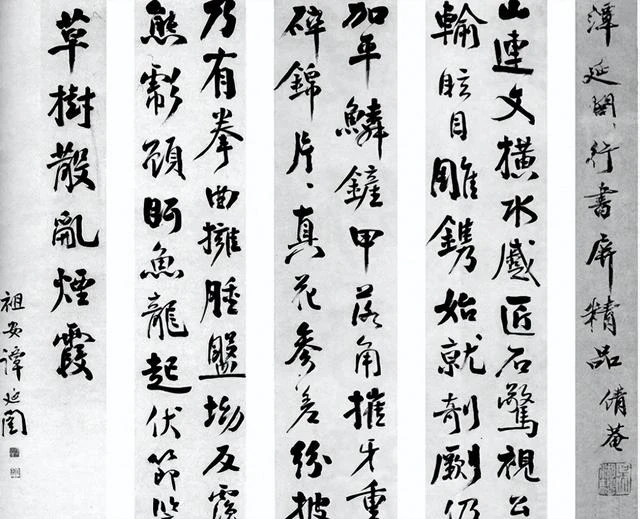 譚延闓行書屏精品 備菴
山連文橫水蹙匠石驚視公
輸眩目雕鐫始就剞劂仍
加平鱗鏟甲落角摧牙重
碎錦片〻真花參差紛披
乃有拳曲擁腫盤坳反覆
熊彪顧眄魚龍起伏節竪
草樹散亂煙霞
祖安譚延闓